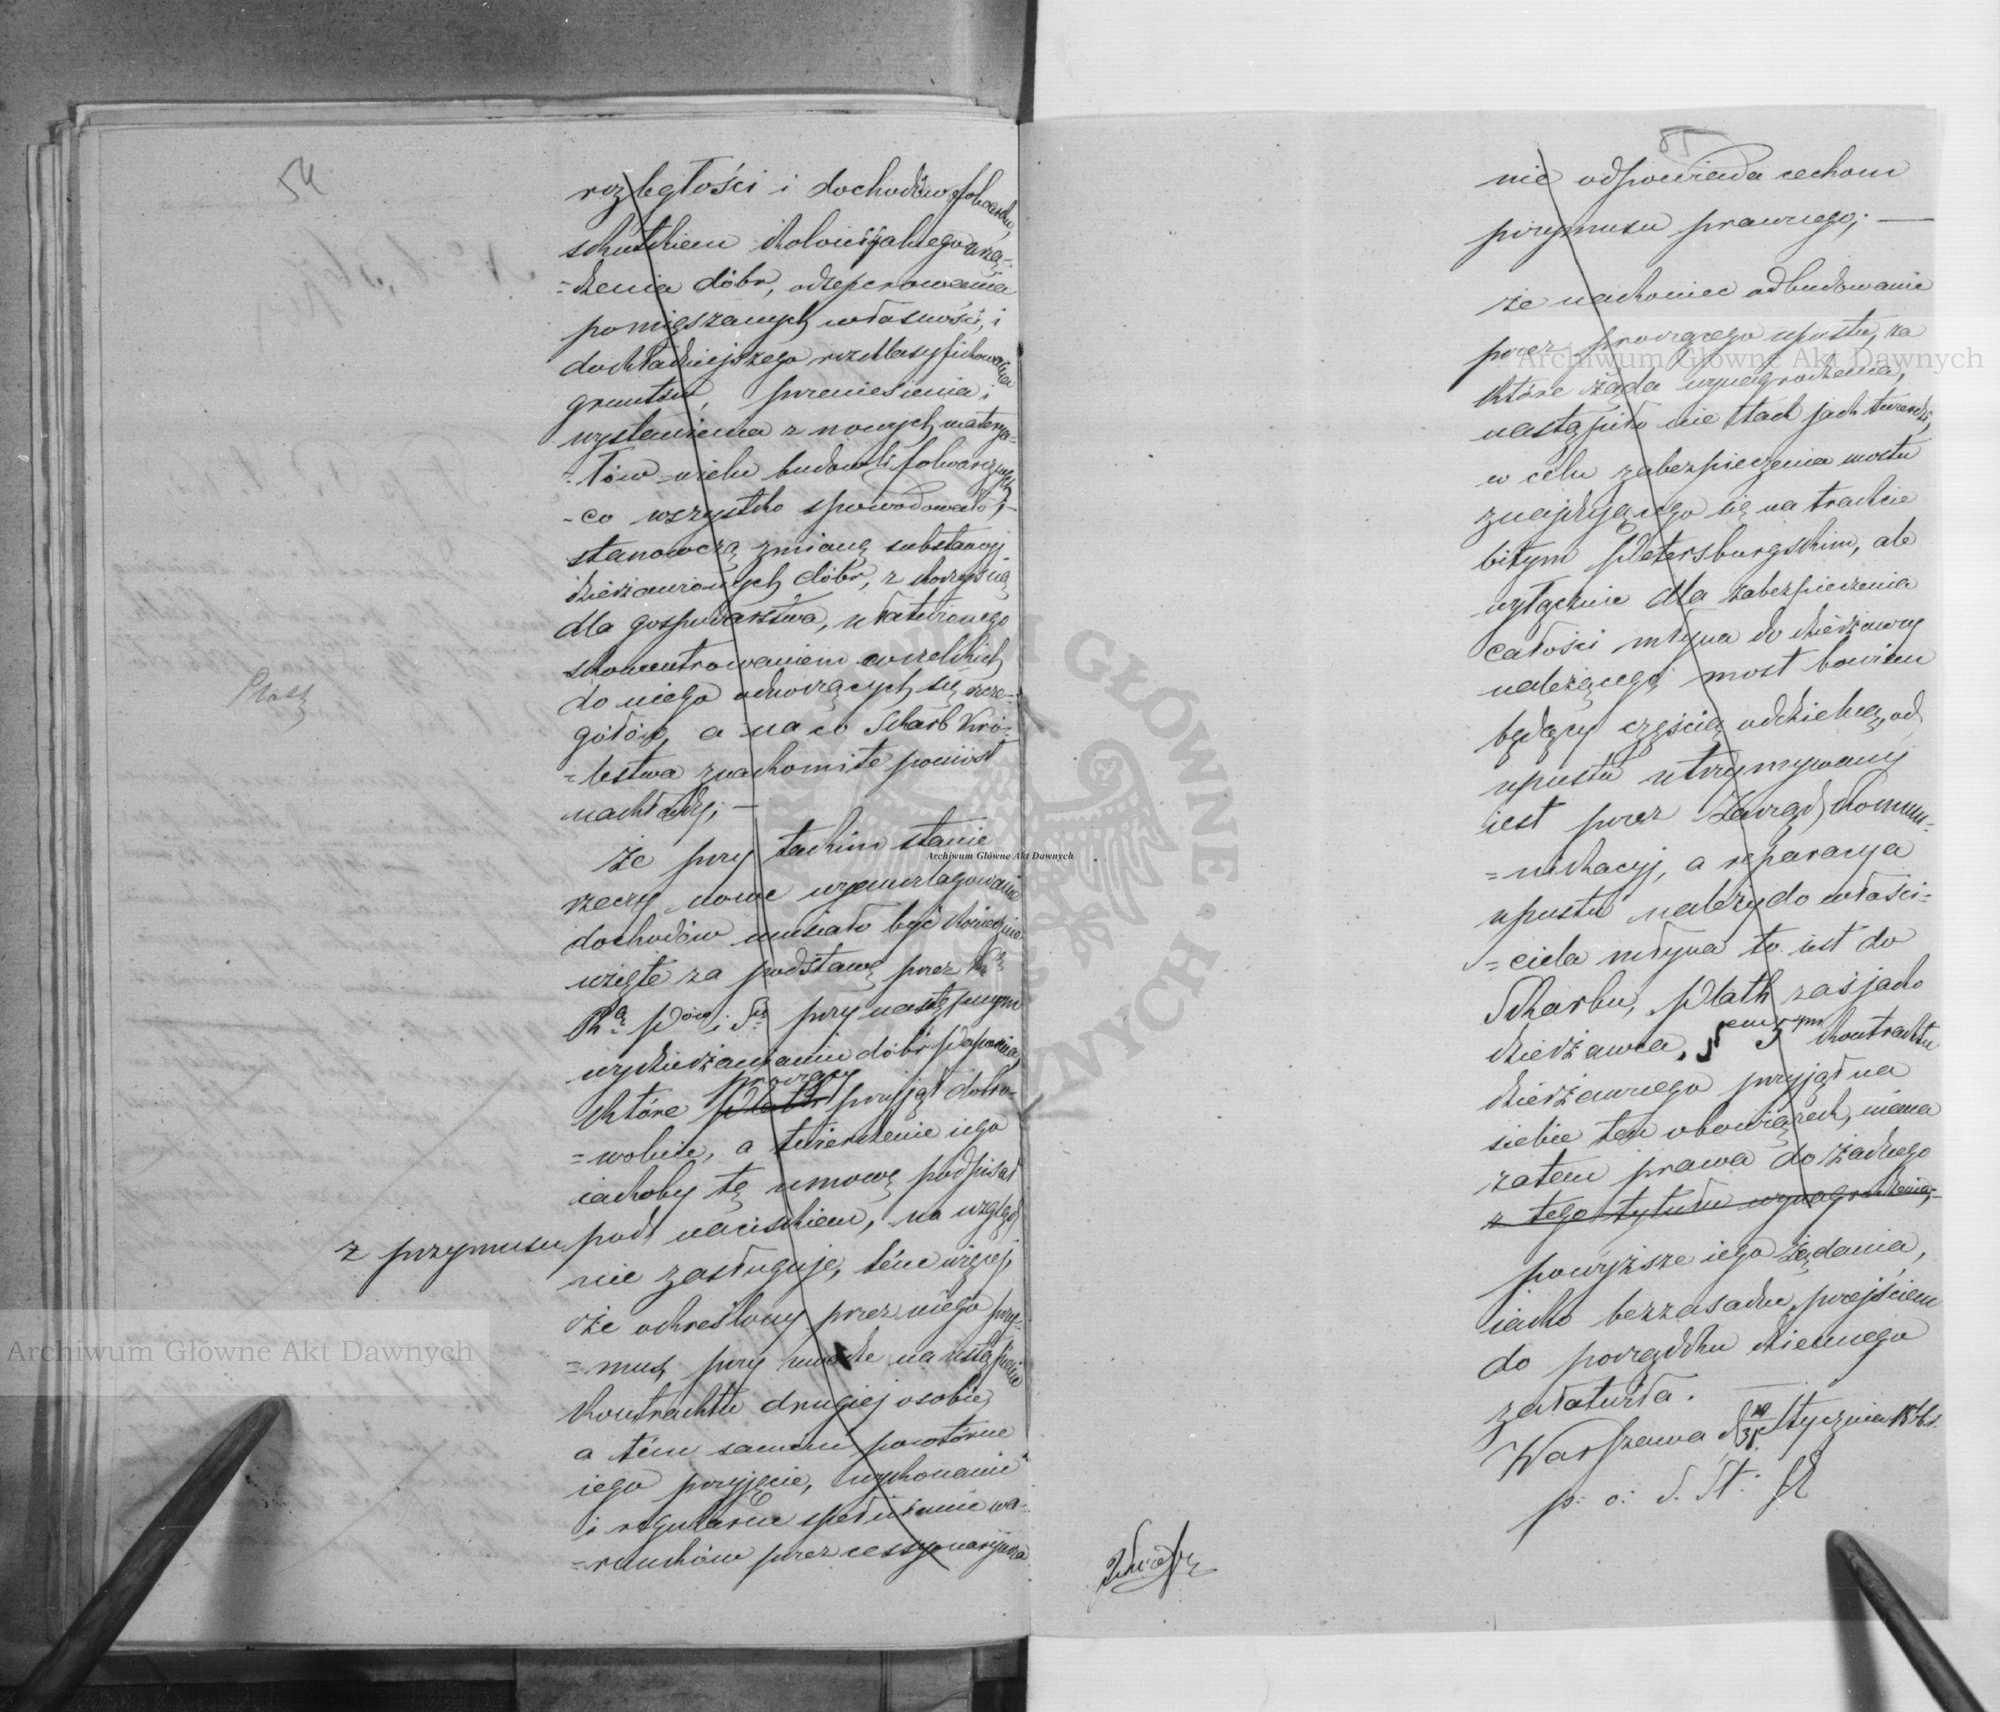 54
rozległości i dochodów folwarku,
skutkiem kolonijalnego urzą-
=dzenia dóbr, odseperowania
pomięszanych własności, i
dokładniejszego rozklasyfikowania
gruntów, przeniesienia i
wystawienia z nowych materya-
=łów wielu budowli folwarcznych,
-co wszystko spowodowało
stanowczą zmianę substancyi
dzierżawionych dóbr, z korzyścią
dla gospodarstwa, ułatwionego
skoncentrowaniem wszelkich
do niego odnoszących się szcze-
gółów, a na co Skarb Kró-
=lestwa znakomite poniósł
nakłady; —
że przy takim stanie
rzeczy nowe wyanszlagowanie
dochodów musiało być koniecznie
wzięte za podstawę przez
przy następnym
wydzierżawianiu dóbr
proszący
które Plath przyjął dobro-
=wolnie, a twierdzenie iego
iakoby tę umowę podpisał
z przymusu pod naciskiem, na wzgląd
nie zasługuje, tém więcej,
że określony przez niego przy-
=mus, przy na ustąpienie
kontraktu drugiej osobie,
a tém samém powtórne
iego przyjęcie, wykonanie
i regularne spełnianie wa-
=runków przez cessyonaryusza
55
nie odpowiada cechom
przymusu prawnego; —
że nakoniec odbudowanie
przez proszącego upustu, za
które żąda wynagrodzenia,
nastąpiło nie tak jak twierdzi,
w celu zabezpieczenia mostu
znajdującego się na trakcie
bitym Petersburgskim, ale
wyłącznie dla zabezpieczenia
całości młyna do dzierżawy
należącego, most bowiem
będący częścią oddzielną od
upustu utrzymywany
iest przez Zarząd kommu-
=nikacyj, a reparacya
upustu należy do właści-
=ciela młyna to iest do
Skarbu, Plath zaś jako
dzierżawca, kontraktu
dzierżawnego przyjął na
siebie ten obowiązek, niema
zatem prawa do żadnego
z tego tytułu wynagrodzenia,-
powyższe iego żądania,
iako bezzasadne, przejściem
do porządku dziennego
załatwiła.
Warszawa d 19/31 Stycznia
p. o. S. St.
Archiwum Główne Akt Dawnych
Archiwum Główne Akt Dawnych
Archiwum Główne Akt Dawnych